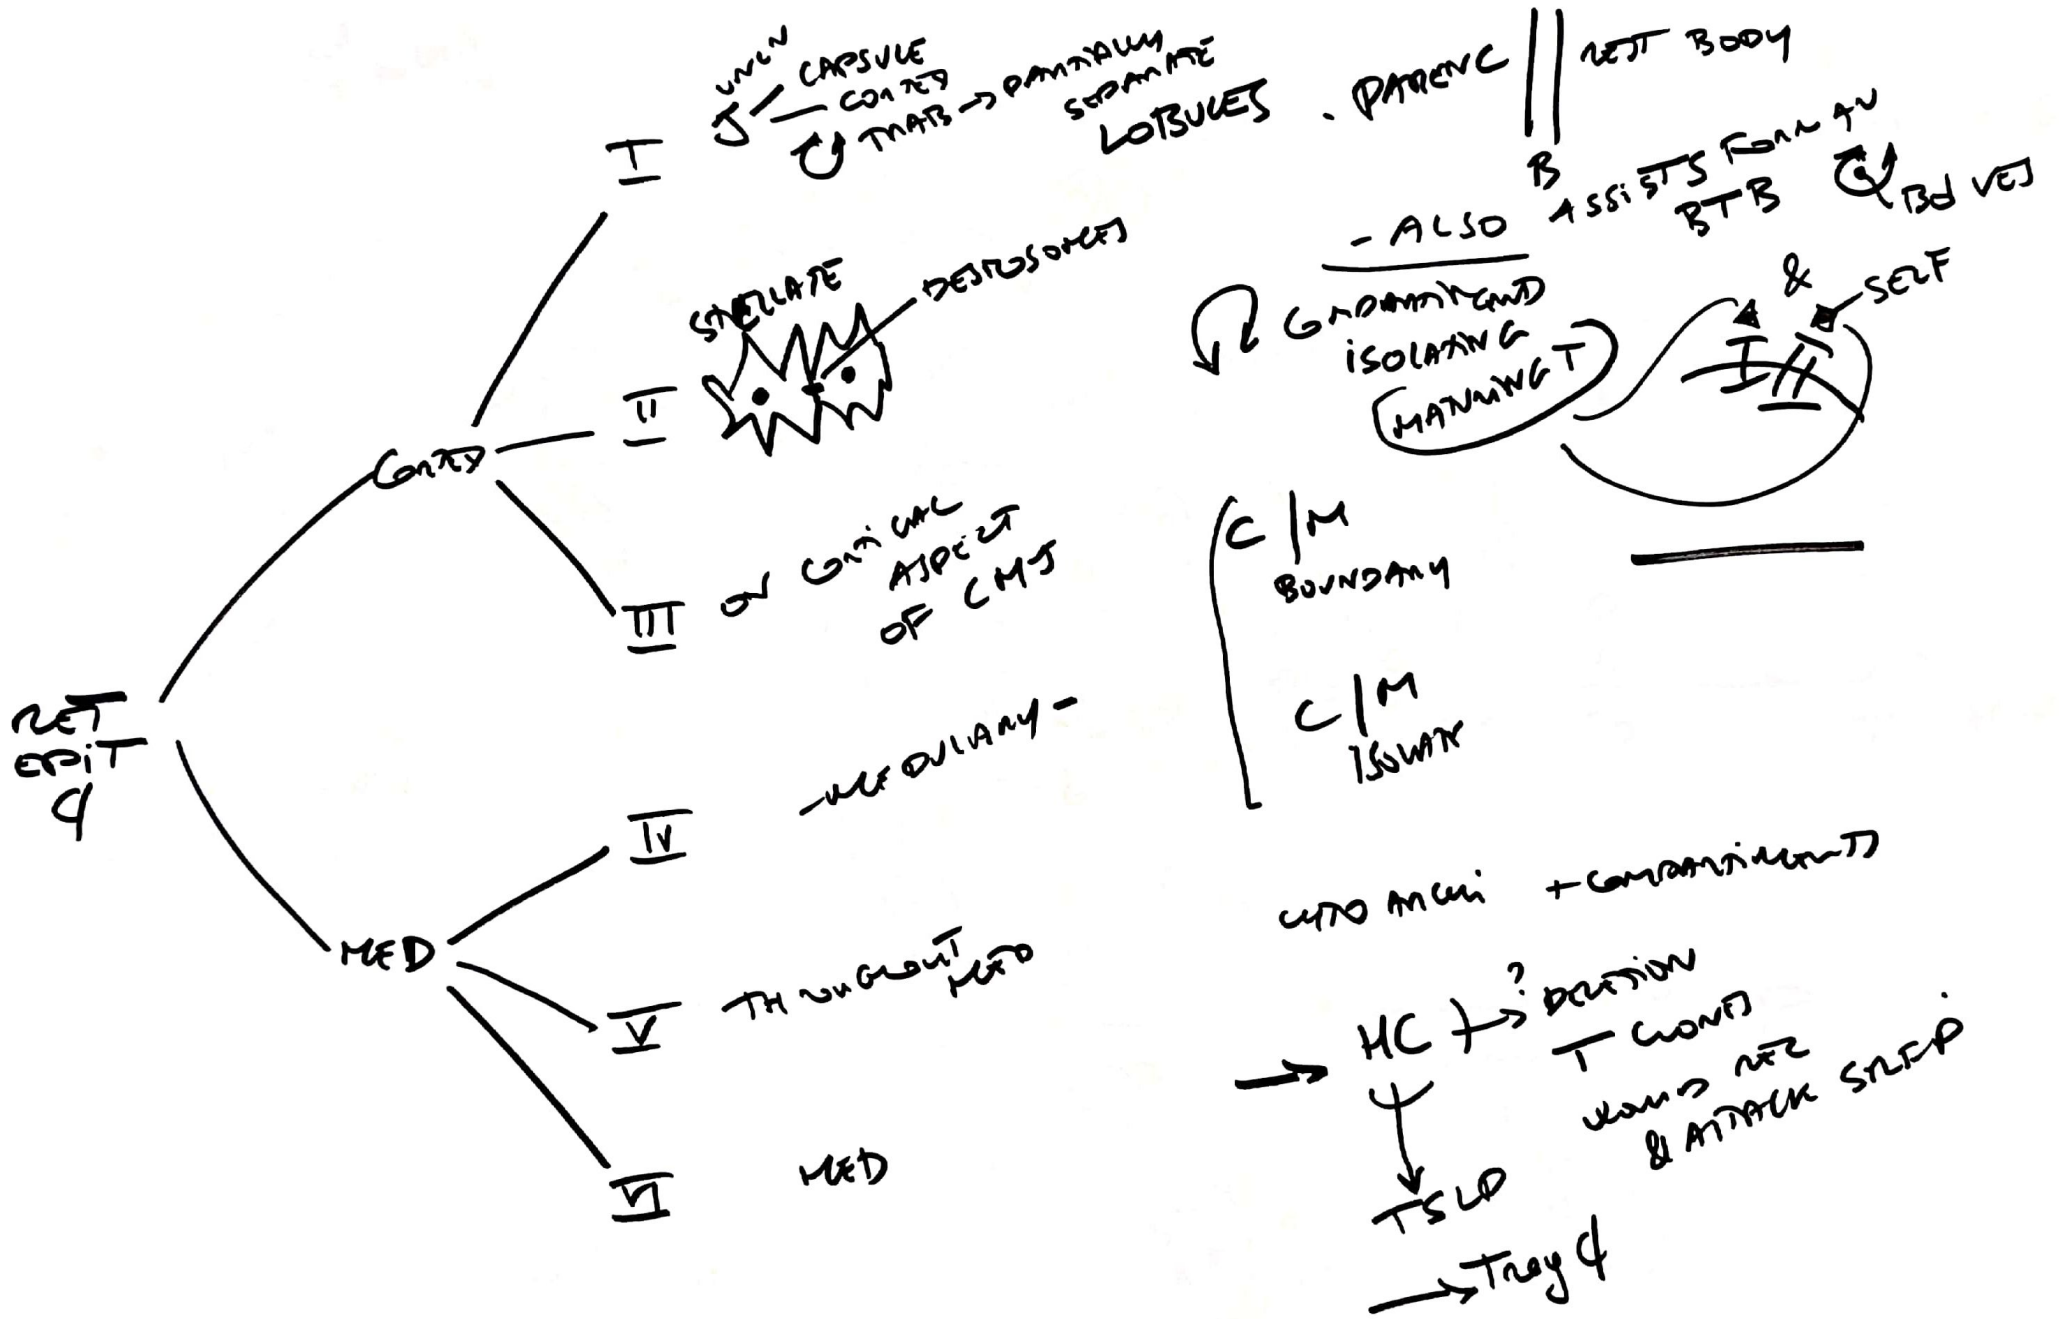 RET
EPIT
CORTEX
MED
I
J
CAPSULE
CORTEX
TRAB → PARTIALLY
SEPARATE
LOBULES
. PARENC
REST BODY
B
- ALSO
ASSISTS FORM AN
BTB
Bd VES
II
STELLATE
DESMOSOMES
ISOLATING
MATURING T
&
SELF
I
II
III
ON CORTICAL
ASPECT
OF CMJ
C/M
BOUNDARY
C/M
ISOLATE
IV
- MEDULLARY -
CYTO
+ COMPARTIMENTS
V
THROUGHOUT
MED
VI
MED
→ HC → ? DELETION
T CLONES
WOULD REC
& ATTACK SELF
TSLP
→ Treg